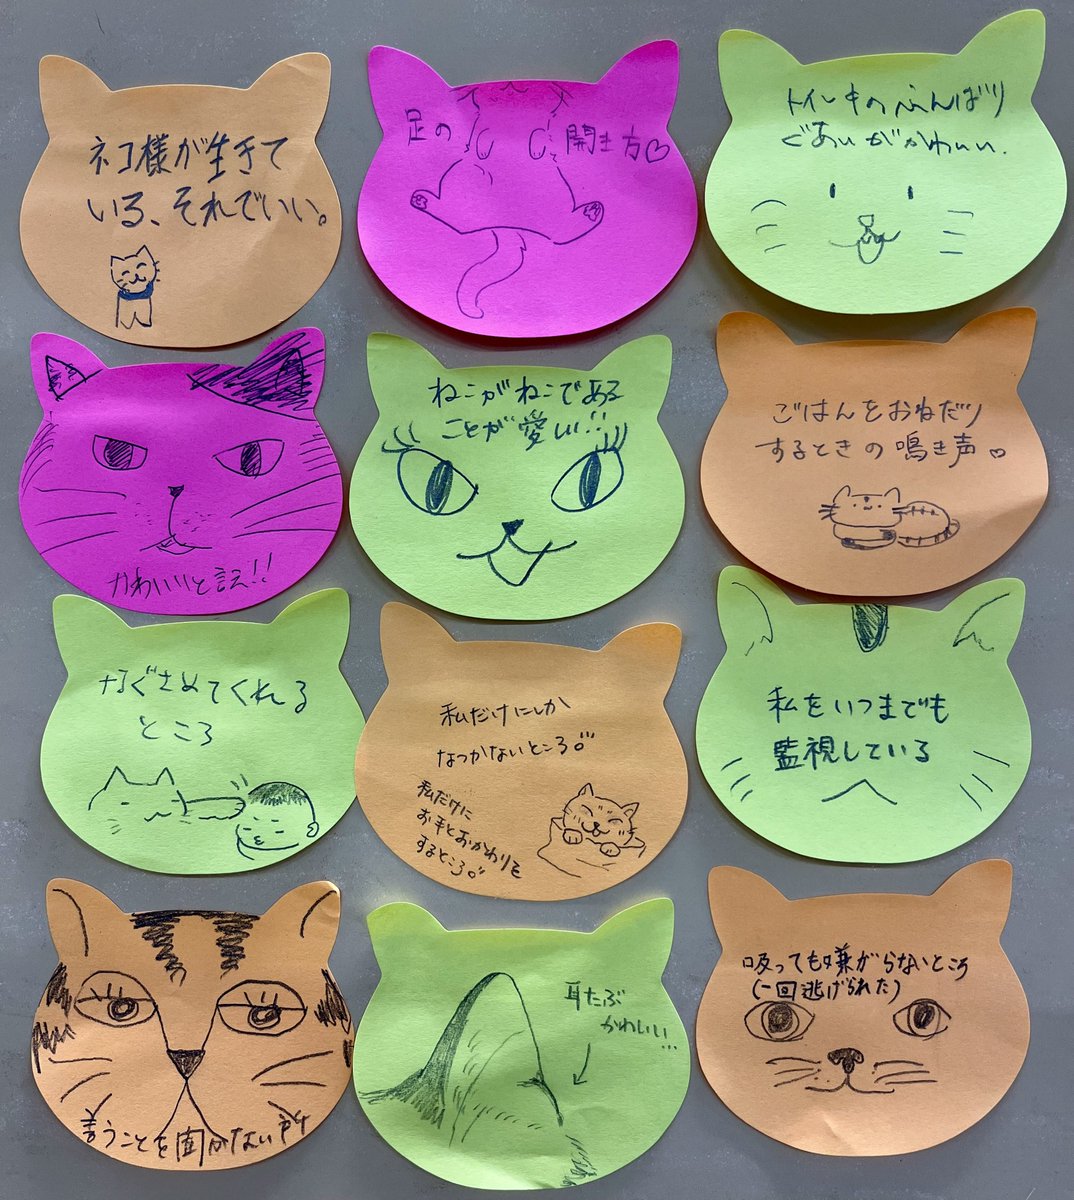 ネコ様が生きて
いる、それでいい。
足の 開き方♡
トイレキのふんばり
ぐあいがかわいい.
かわいいと言え!!
ねこがねこである
ことが愛しい!!
ごはんをおねだり
するときの鳴き声♡
なぐさめてくれる
ところ
私だけにしか
なつかないところ。
私だけに
お手とおかわりを
するところ。
私をいつまでも
監視している
言うことを聞かない所
耳たぶ
かわいい…
吸っても嫌がらないところ
(一回逃げられた)